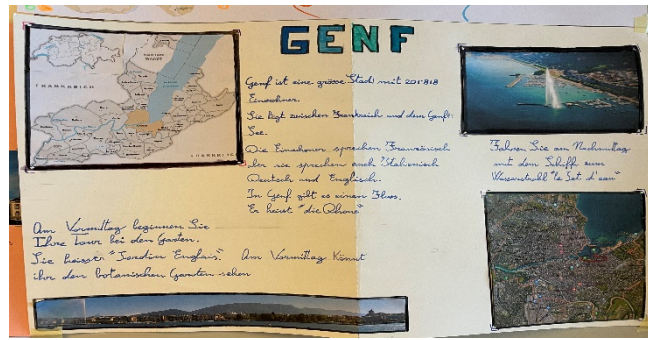 GENF
FRANKREICH
Genf ist eine grosse Stadt mit 201'818
Einwohner.
Sie liegt zwischen Frankreich und dem Genfer
See.
Die Einwohner sprechen Französisch
aber sie sprechen auch Italienisch
Deutsch und Englisch.
In Genf gibt es einen Fluss.
Er heisst "die Rhone"
Fahren Sie am Nachmittag
mit dem Schiff zum
Wasserstrahl "le Jet d'eau"
Am Vormittag beginnen Sie
Ihre Tour bei den Garten.
Sie heisst "Jardin Englais". Am Vormittag könnt
ihr den botanischen Garten sehen